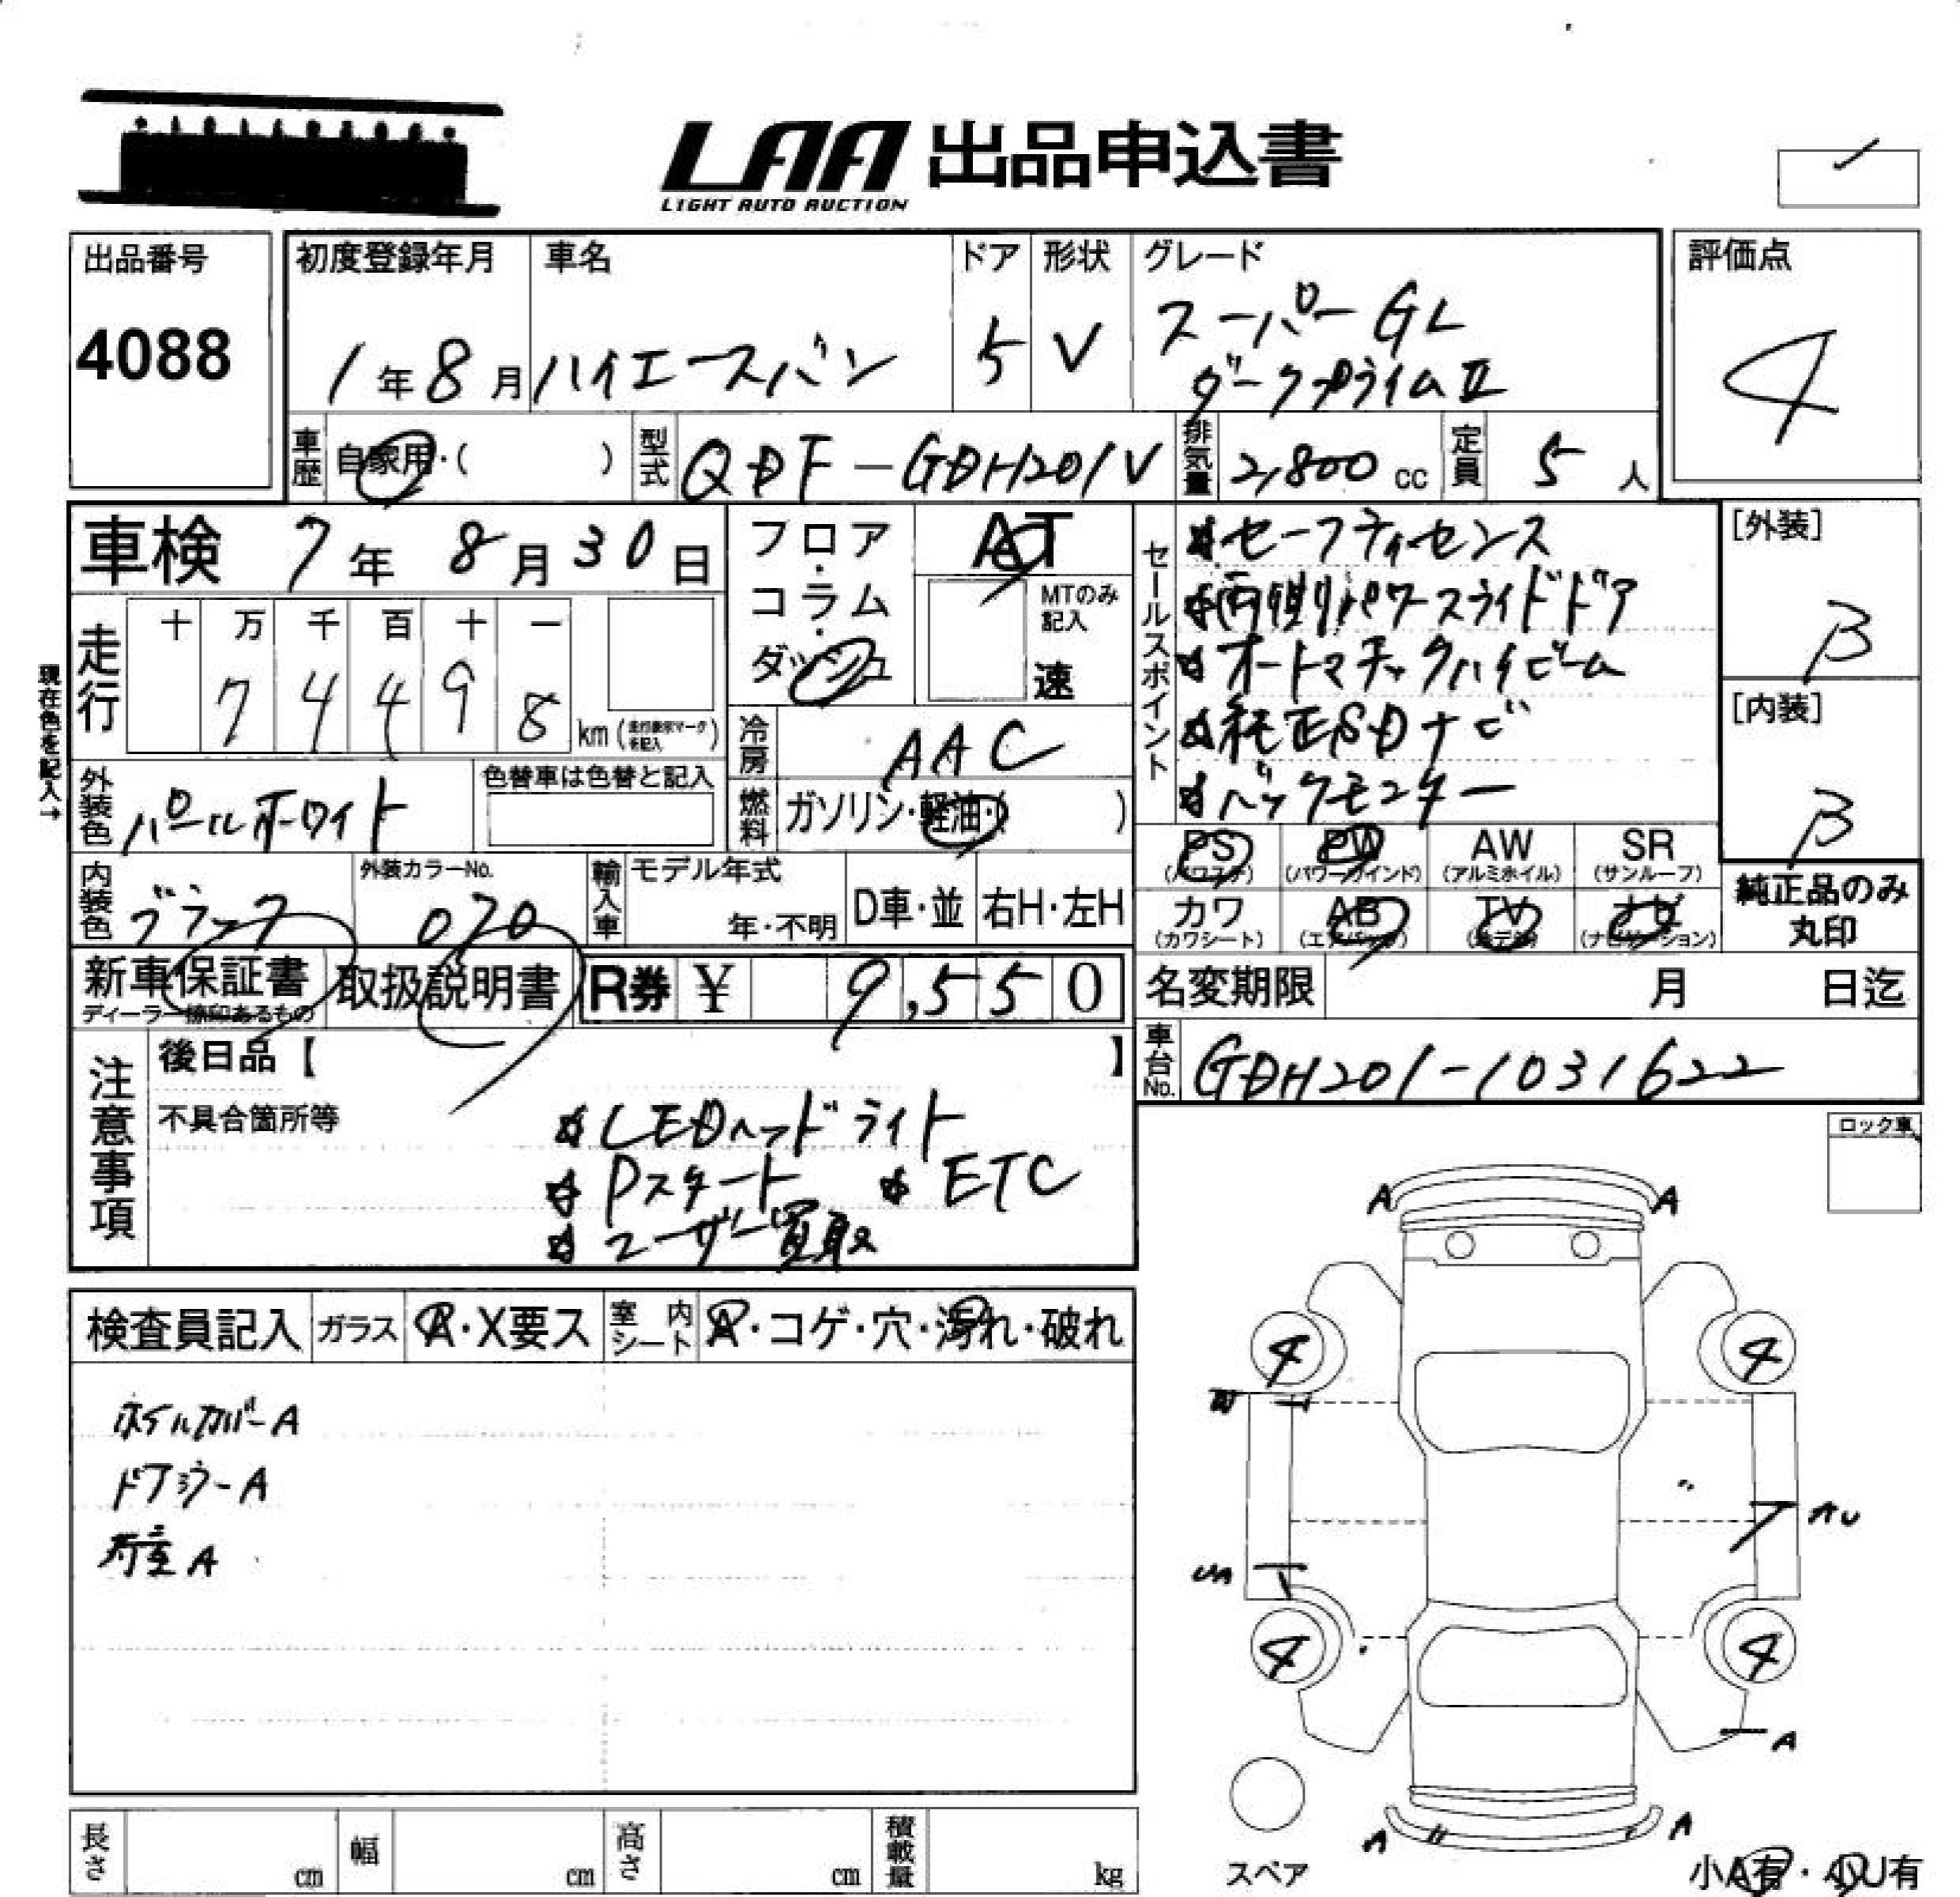 LAA 出品申込書
LIGHT AUTO AUCTION
出品番号
4088
初度登録年月
1年8月
車名
ハイエースバン
ドア
5
形状
V
グレード
スーパーGL
ダークプライムⅡ
評価点
4
車歴
自家用・( )
型式
QDF-GDH201V
排気量
2,800 cc
定員
5 人
車検 7年 8月 30日
フロア・コラム・ダッシュ
AT
MTのみ記入
速
セールスポイント
☆セーフティセンス
☆両側パワースライドドア
☆オートマチックハイビーム
☆純正SDナビ
☆バックモニター
[外装]
B
[内装]
B
現在色を記入→
走行
十 万 千 百 十 一
7 4 4 9 8 km
冷房
AAC
外装色
パールホワイト
色替車は色替と記入
燃料
ガソリン・軽油・( )
PS
AW
SR
(パワステ) (パワーウインド) (アルミホイル) (サンルーフ)
PW
カワ AB TV ナビ
(カワシート) (エアバッグ) (ナビゲーション)
純正品のみ
丸印
内装色
ブラック
外装カラーNo.
070
輸入車
モデル年式
年・不明
D車・並
右H・左H
新車保証書
ディーラー捺印あるもの
取扱説明書
R券 ¥ 9,550
名変期限 月 日迄
車台No.
GDH201-1031622
注意事項
後日品【 】
不具合箇所等
☆LEDヘッドライト
☆Pスタート ☆ETC
☆ユーザー買取
ロック車
検査員記入
ガラス
A・X要ス
室内シート
A・コゲ・穴・汚れ・破れ
ホイルカバーA
ドアミラーA
荷室A
A A
4 4
AU
4 4
A
A A
スペア
小A有・小U有
長さ cm
幅 cm
高さ cm
積載量 kg